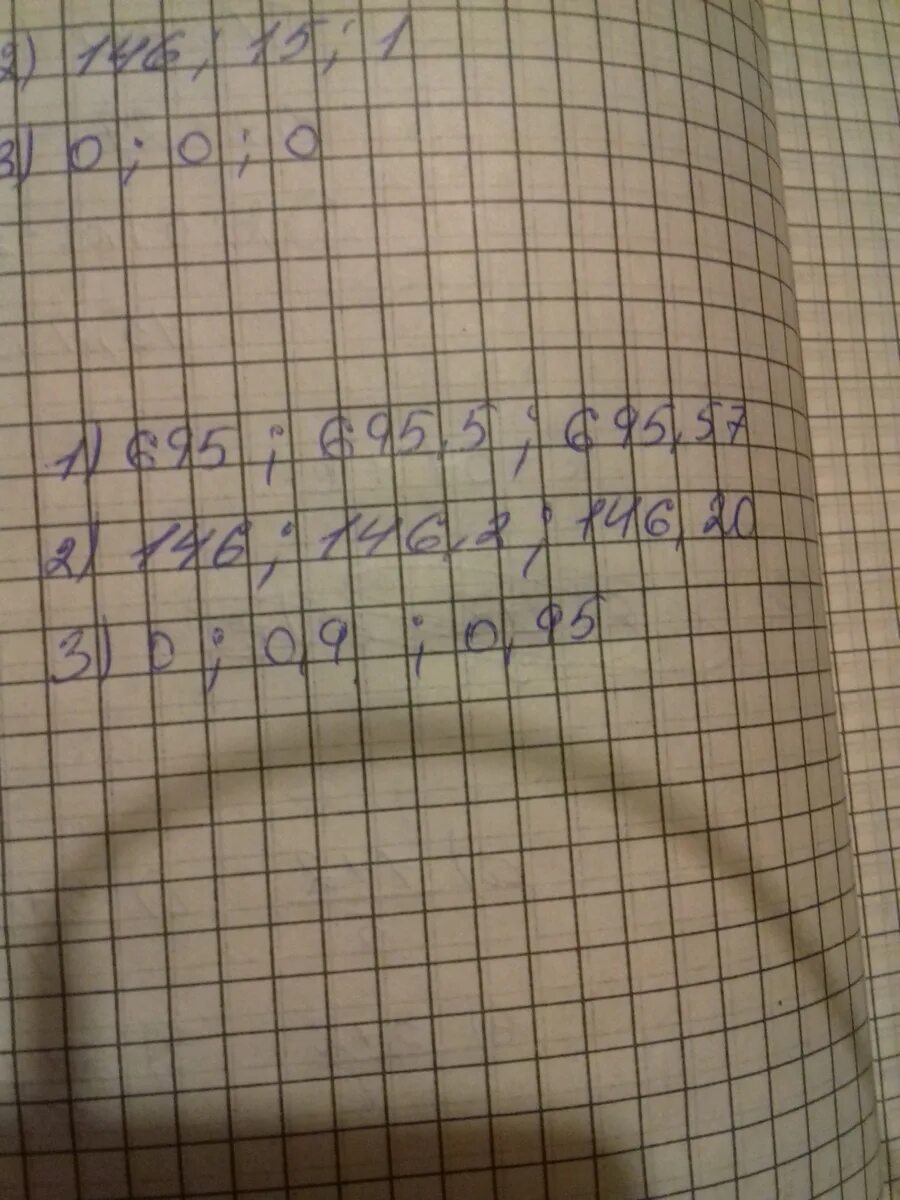 2) 146; 15; 1
3) 0; 0; 0
1) 695; 695,5; 695,57
2) 146; 146,2; 146,20
3) 0; 0,9; 0,95